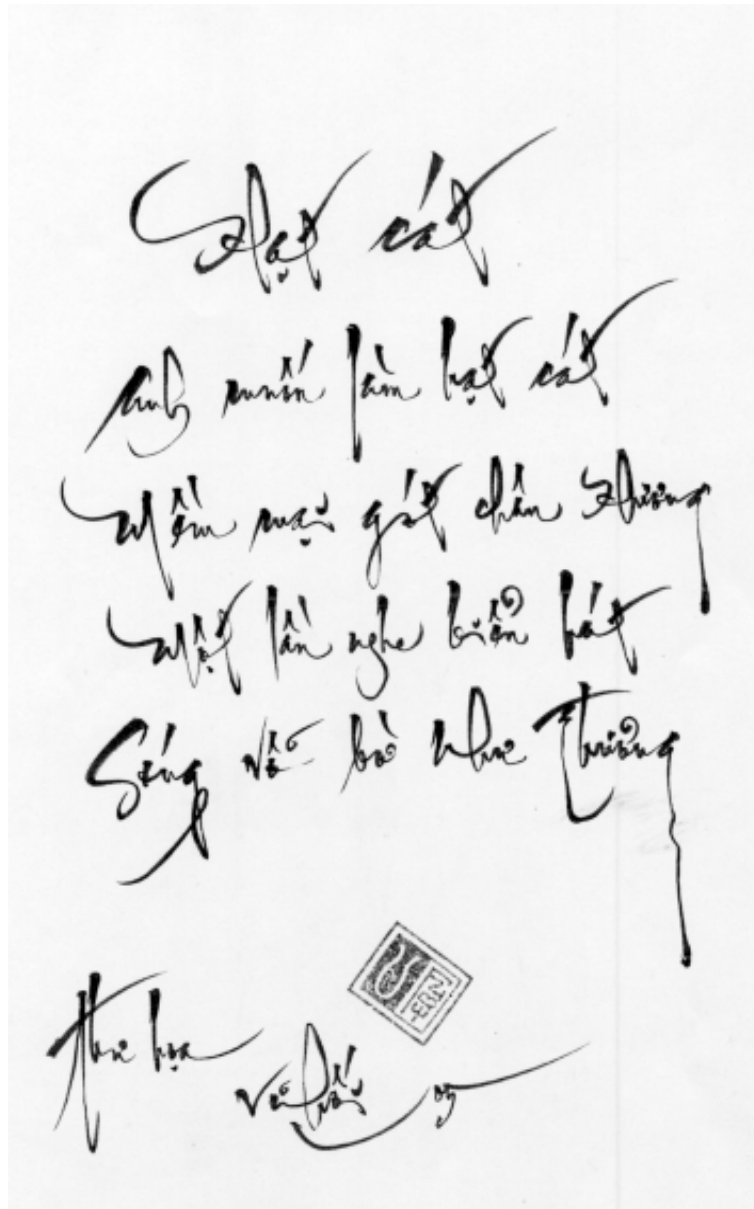 Hạt cát
Anh muốn làm hạt cát
Mềm mại gót chân Hường
Một lần nghe biển hát
Sóng vỗ bờ như
thư họa